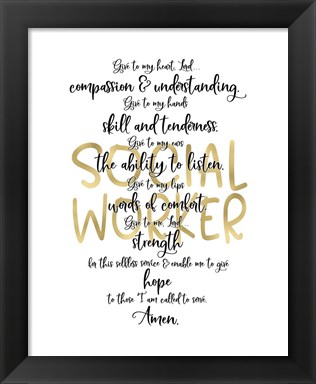 Give to my heart, Lord...
compassion & understanding.
Give to my hands
skill and tenderness.
Give to my ears
the ability to listen.
Give to my lips
words of comfort.
Give to me, Lord...
strength
for this selfless service & enable me to give
hope
to those I am called to serve.
Amen.
SOCIAL
WORKER